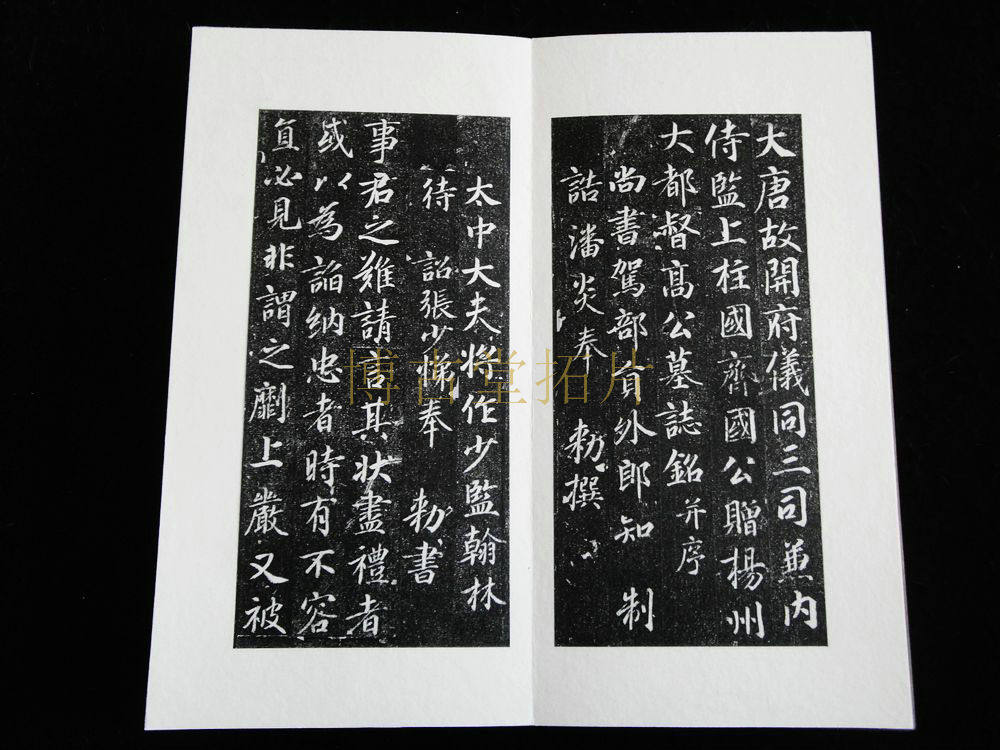 大唐故開府儀同三司兼内
侍監上柱國齊國公贈楊州
大都督高公墓誌銘并序
尚書駕部負外郎知 制
誥潘炎奉 勑撰
太中大夫將作少監翰林
待 詔張少悌奉 勑書
事君之難請言其狀盡禮者
或以為諂納忠者時有不容
直必見非謂之劘上嚴又被
博古堂拓片